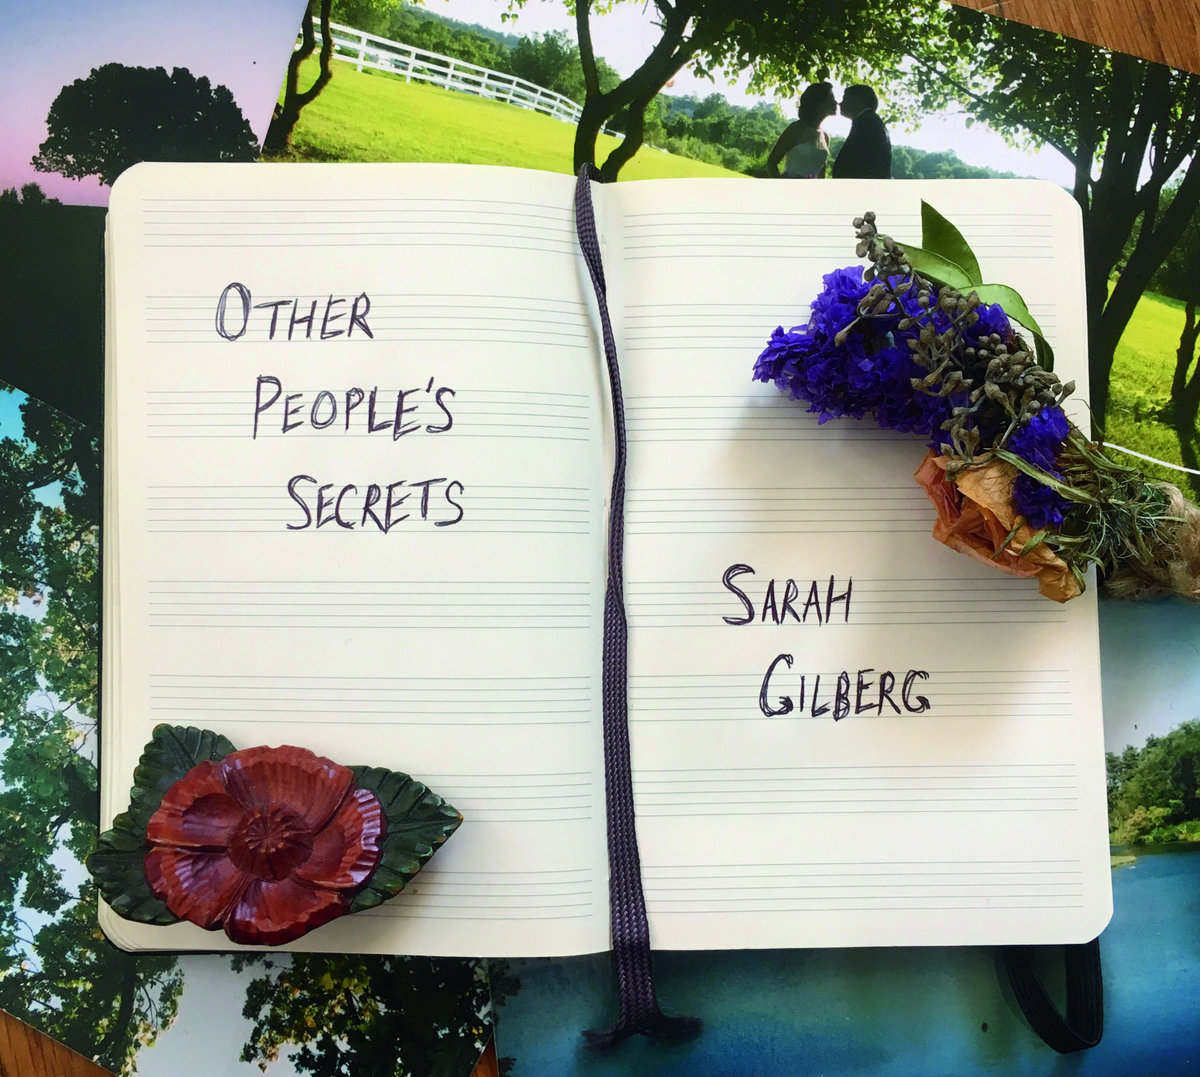 OTHER
PEOPLE'S
SECRETS
SARAH
GILBERG